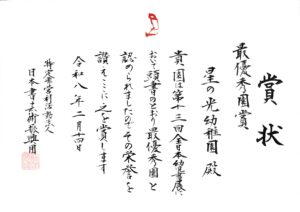 賞状
最優秀園賞
星の光幼稚園 殿
貴園は第十三回全日本幼年展に
おいて頭書のとおり最優秀園と
認められましたのでその栄誉を
讃えここに之を賞します
令和八年二月十四日
特定非営利活動法人
日本書芸術振興団